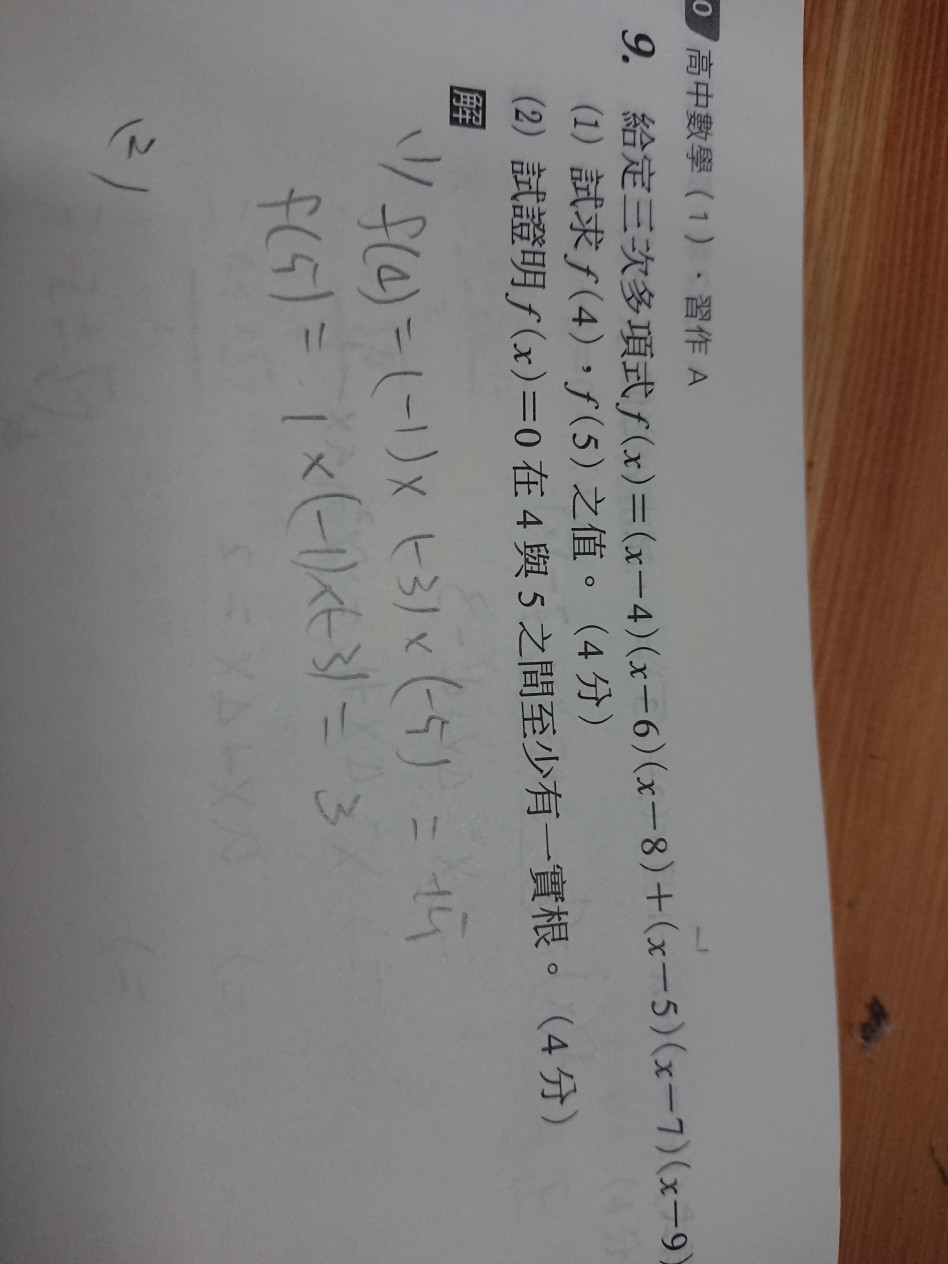 0 高中數學(1)．習作 A
9. 給定三次多項式 f(x)=(x-4)(x-6)(x-8)+(x-5)(x-7)(x-9)
(1) 試求 f(4)，f(5) 之值。(4 分)
(2) 試證明 f(x)=0 在 4 與 5 之間至少有一實根。(4 分)
解
(1) f(4)=(-1)×(-3)×(-5)=-15
f(5)=1×(-1)×(-3)=3
(2)